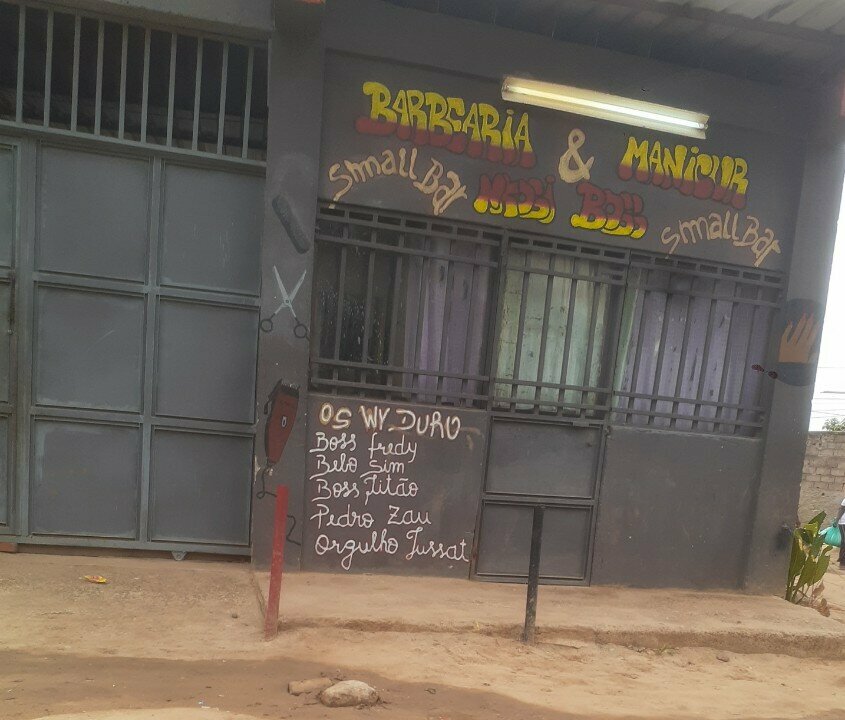 BARBEARIA & MANICUR
Smmall Bar MOSI BOSS Smmall Bar
OS WY DURO
Boss fredy
Bebo Sim
Boss, Titão
Pedro Zau
Orgulho Jussat